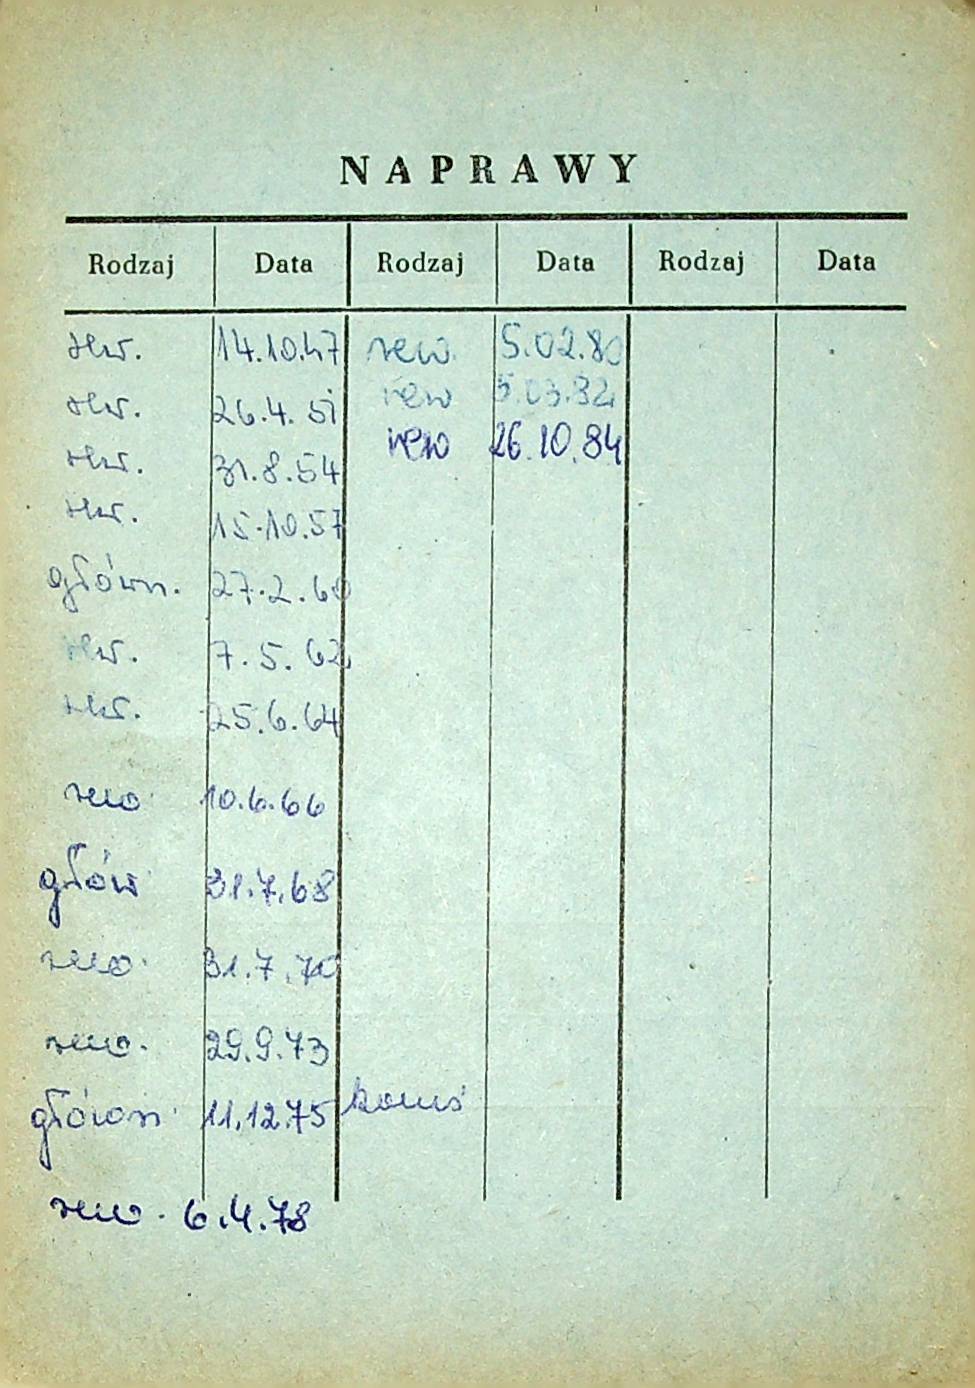 NAPRAWY
Rodzaj Data Rodzaj Data Rodzaj Data
14.10.47 rew. 5.02.80
26.4.51 rew 5.03.82
31.8.54 rew 26.10.84
15.10.57
główn. 27.2.60
7.5.62
25.6.64
rew. 10.6.66
głów 31.7.68
rew. 31.7.70
rew. 29.9.73
główn. 11.12.75
rew. 6.4.78